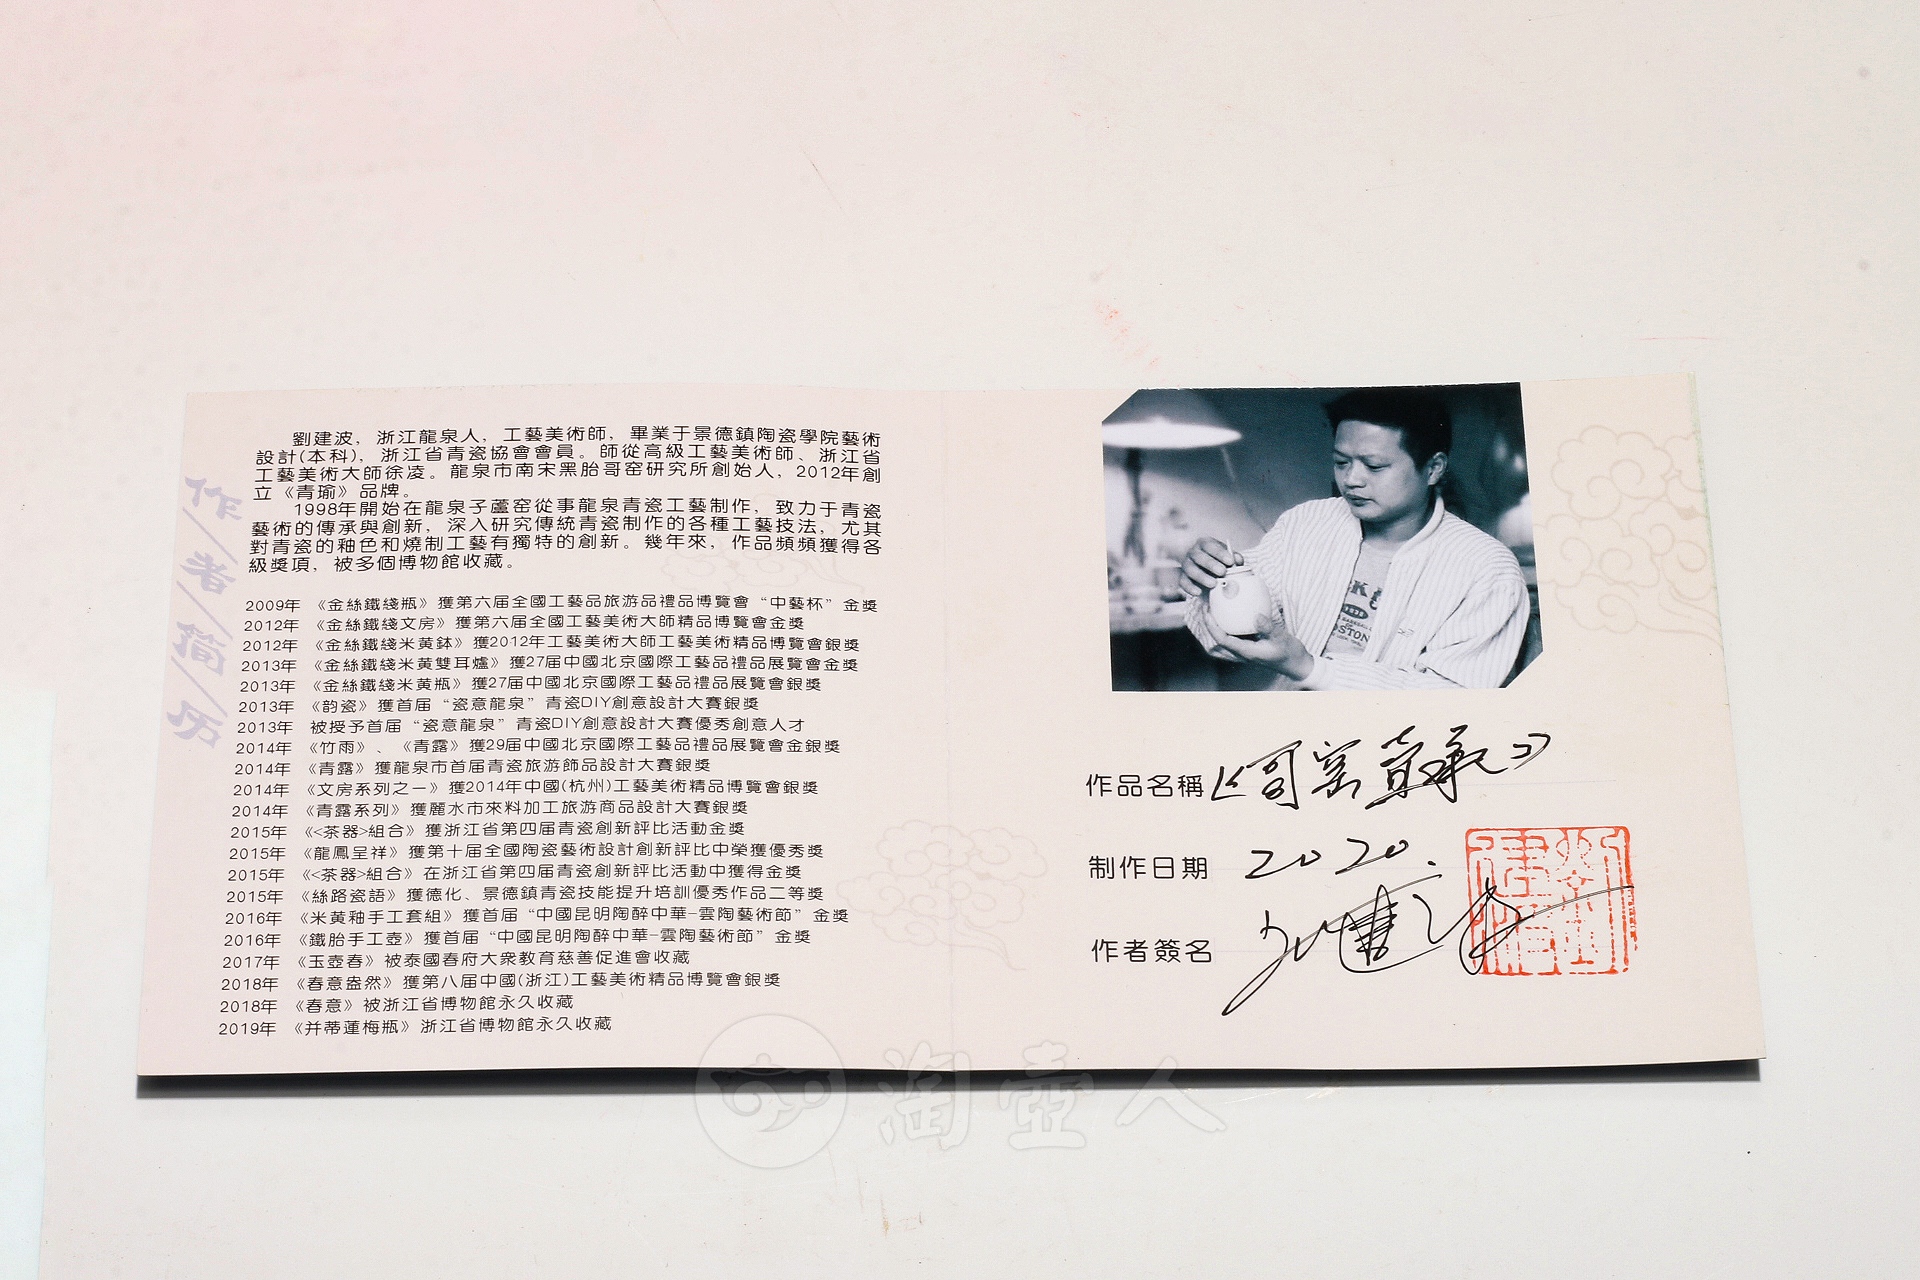 作/者/簡/历
劉建波，浙江龍泉人，工藝美術師，畢業于景德鎮陶瓷學院藝術
設計(本科)，浙江省青瓷協會會員。師從高級工藝美術師、浙江省
工藝美術大師徐凌。龍泉市南宋黑胎哥窑研究所創始人，2012年創
立《青瑜》品牌。
1998年開始在龍泉子蘆窑從事龍泉青瓷工藝制作，致力于青瓷
藝術的傳承與創新，深入研究傳統青瓷制作的各種工藝技法，尤其
對青瓷的釉色和燒制工藝有獨特的創新。幾年來，作品頻頻獲得各
級獎項，被多個博物館收藏。
2009年 《金絲鐵綫瓶》獲第六届全國工藝品旅游品禮品博覽會“中藝杯”金獎
2012年 《金絲鐵綫文房》獲第六届全國工藝美術大師精品博覽會金獎
2012年 《金絲鐵綫米黄鉢》獲2012年工藝美術大師工藝美術精品博覽會銀獎
2013年 《金絲鐵綫米黄雙耳爐》獲27届中國北京國際工藝品禮品展覽會金獎
2013年 《金絲鐵綫米黄瓶》獲27届中國北京國際工藝品禮品展覽會銀獎
2013年 《韵瓷》獲首届“瓷意龍泉”青瓷DIY創意設計大賽銀獎
2013年 被授予首届“瓷意龍泉”青瓷DIY創意設計大賽優秀創意人才
2014年 《竹雨》、《青露》獲29届中國北京國際工藝品禮品展覽會金銀獎
2014年 《青露》獲龍泉市首届青瓷旅游飾品設計大賽銀獎
2014年 《文房系列之一》獲2014年中國(杭州)工藝美術精品博覽會銀獎
2014年 《青露系列》獲麗水市來料加工旅游商品設計大賽銀獎
2015年 《<茶器>組合》獲浙江省第四届青瓷創新評比活動金獎
2015年 《龍鳳呈祥》獲第十届全國陶瓷藝術設計創新評比中榮獲優秀獎
2015年 《<茶器>組合》在浙江省第四届青瓷創新評比活動中獲得金獎
2015年 《絲路瓷語》獲德化、景德鎮青瓷技能提升培訓優秀作品二等獎
2016年 《米黄釉手工套組》獲首届“中國昆明陶醉中華-雲陶藝術節”金獎
2016年 《鐵胎手工壺》獲首届“中國昆明陶醉中華-雲陶藝術節”金獎
2017年 《玉壺春》被泰國春府大衆教育慈善促進會收藏
2018年 《春意盎然》獲第八届中國(浙江)工藝美術精品博覽會銀獎
2018年 《春意》被浙江省博物館永久收藏
2019年 《并蒂蓮梅瓶》浙江省博物館永久收藏
作品名稱《哥窑傳承》
制作日期 2020.
作者簽名 刘建波
淘壺人